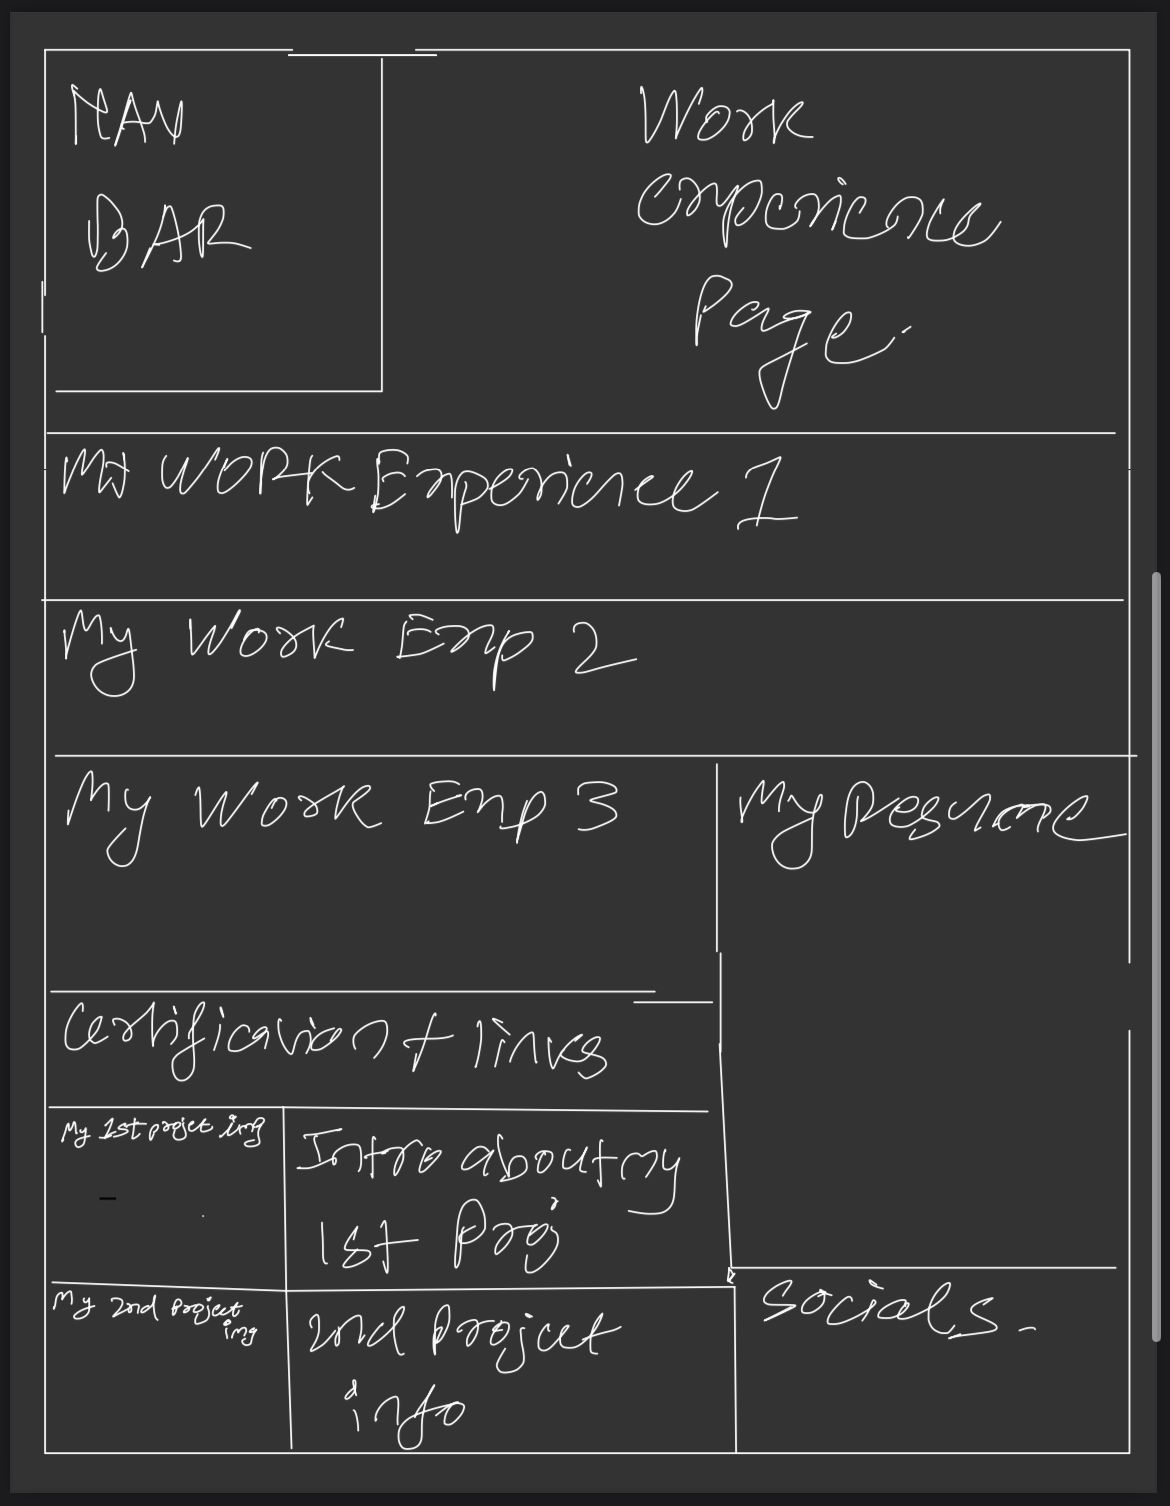 NAV
BAR
Work
experience
Page.
My WORK Experience 1
My Work Exp 2
My Work Exp 3
My Resume
Certification + links
My 1st projet img
Intro about my
1st Proj
My 2nd Project
img
2nd Project
info
Socials.